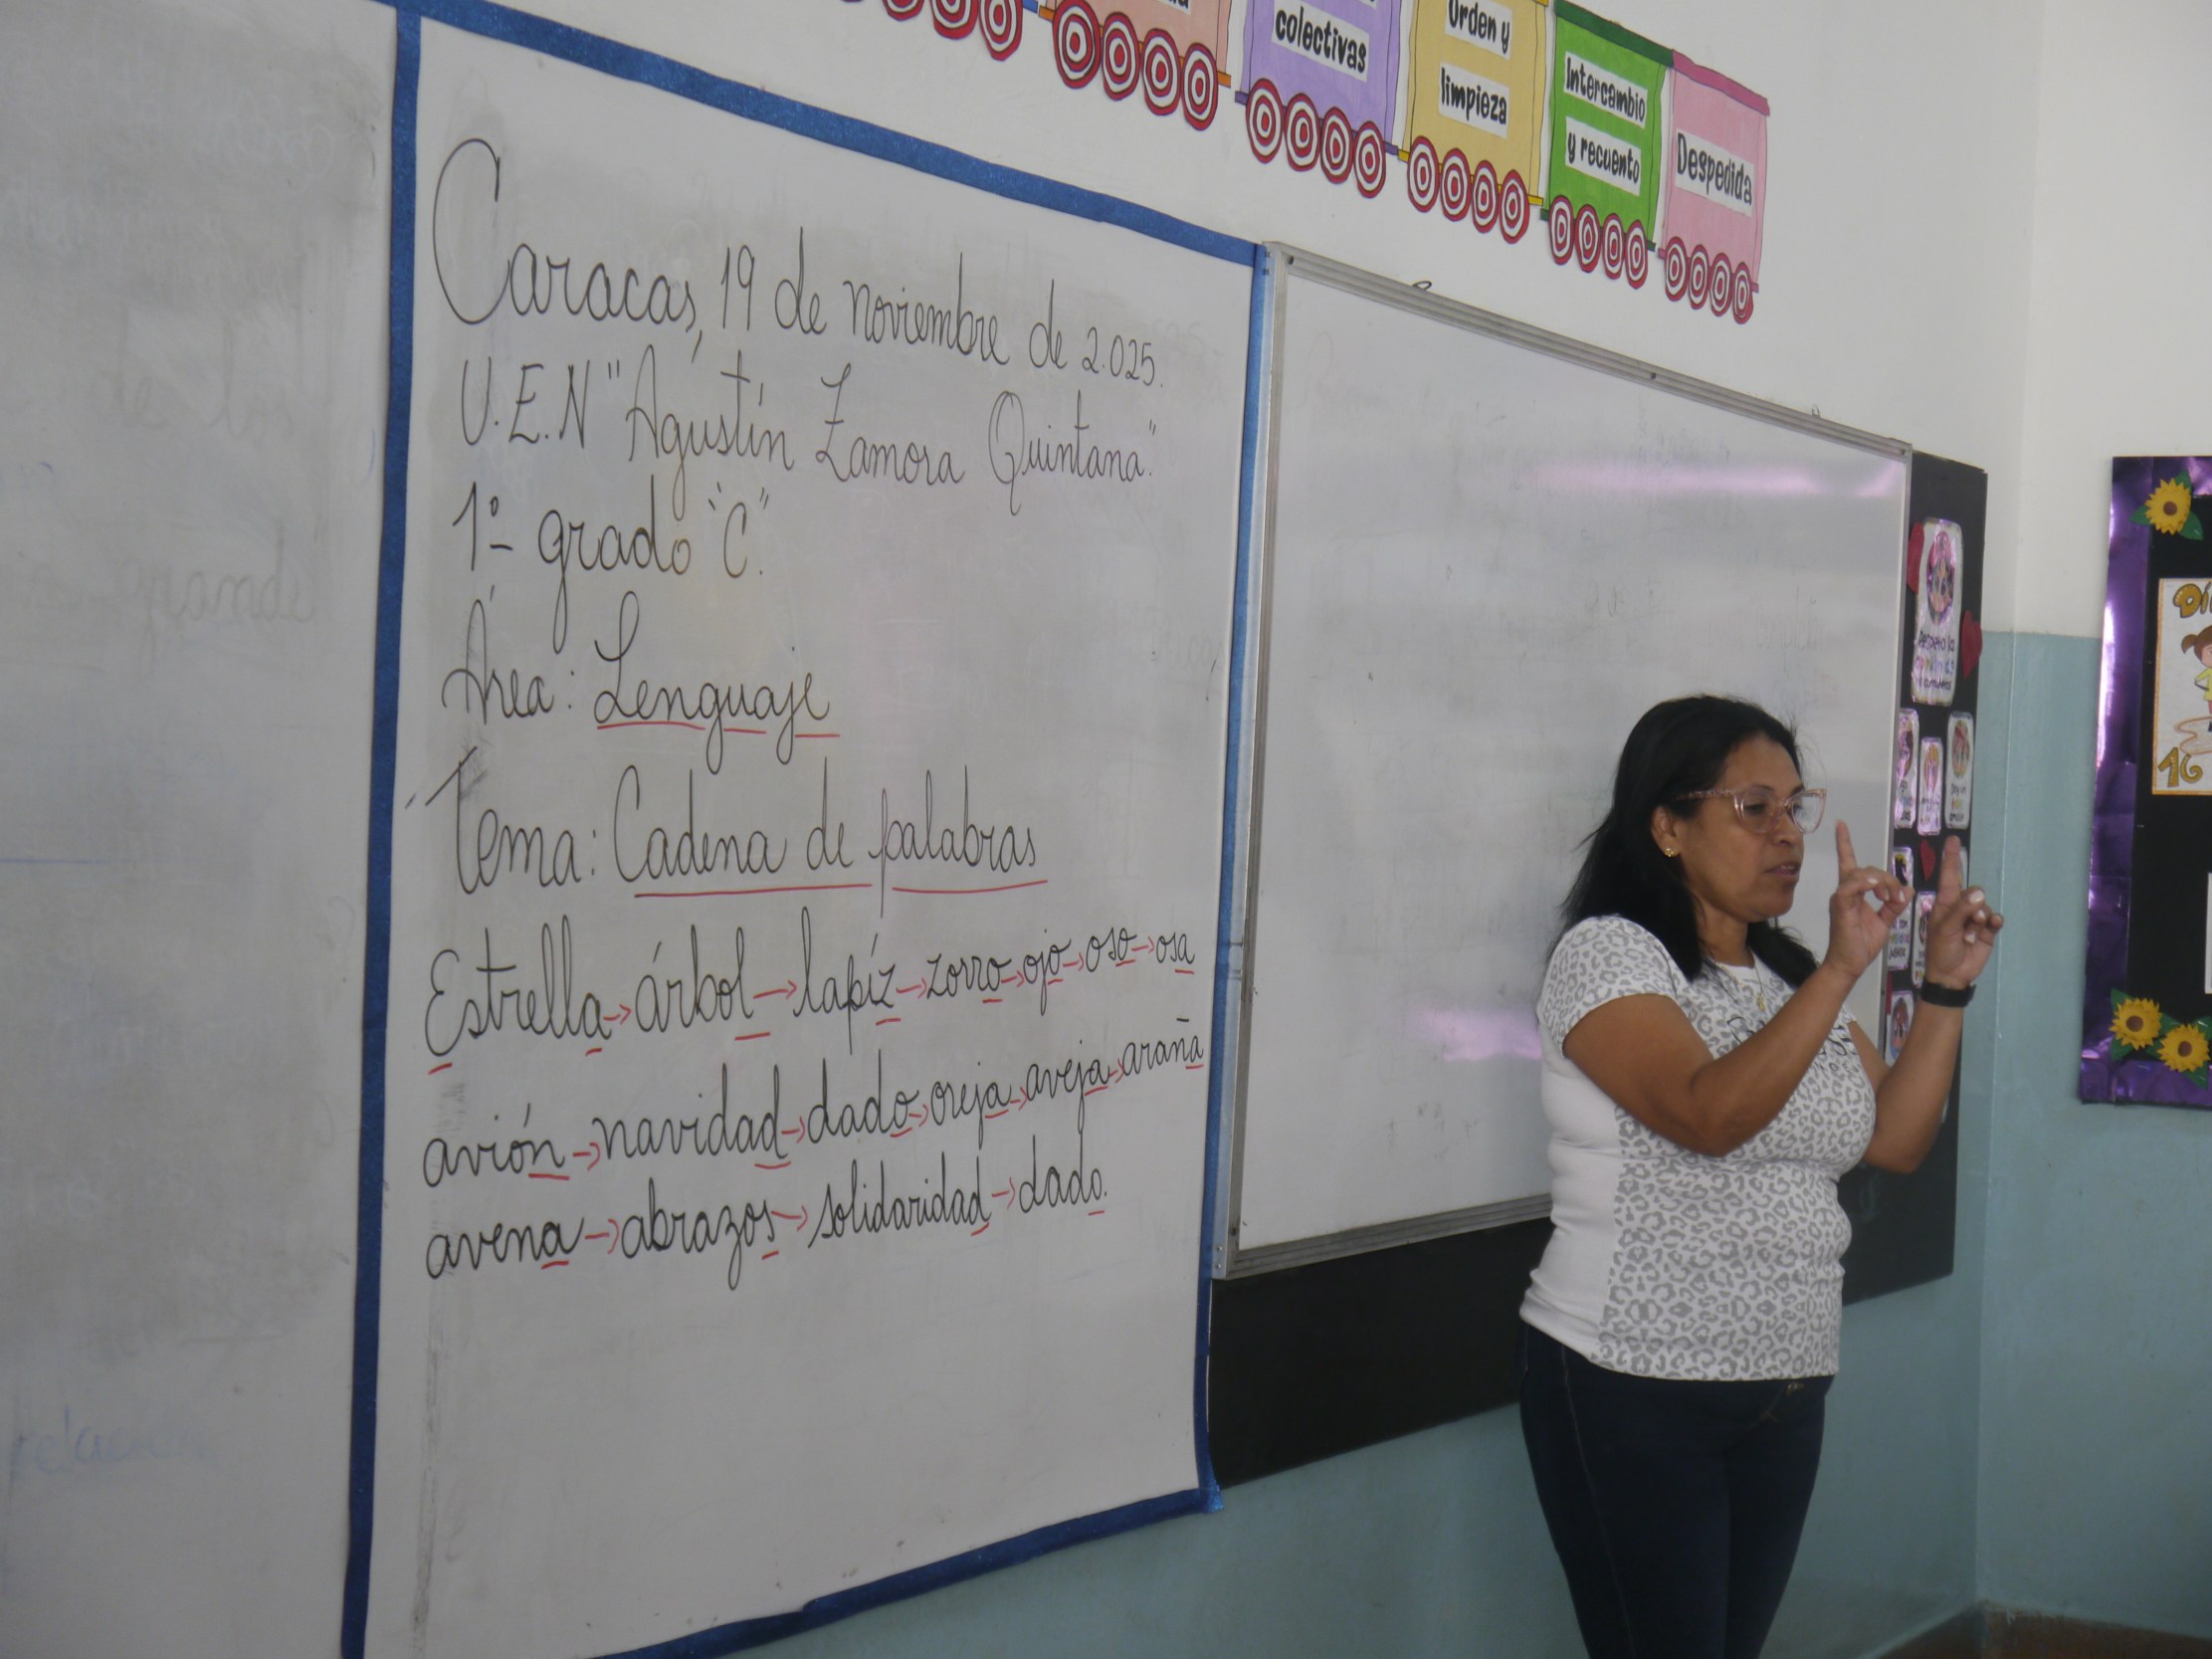 colectivas
Orden y
limpieza
Intercambio
y recuento
Despedida
Caracas, 19 de noviembre de 2.025.
U.E.N "Agustín Zamora Quintana".
1º grado "C".
Área: Lenguaje
Tema: Cadena de palabras
Estrella → árbol → lapíz → zorro → ojo → oso → osa
avión → navidad → dado → oreja → aveja → araña
avena → abrazos → solidaridad → dado.
16